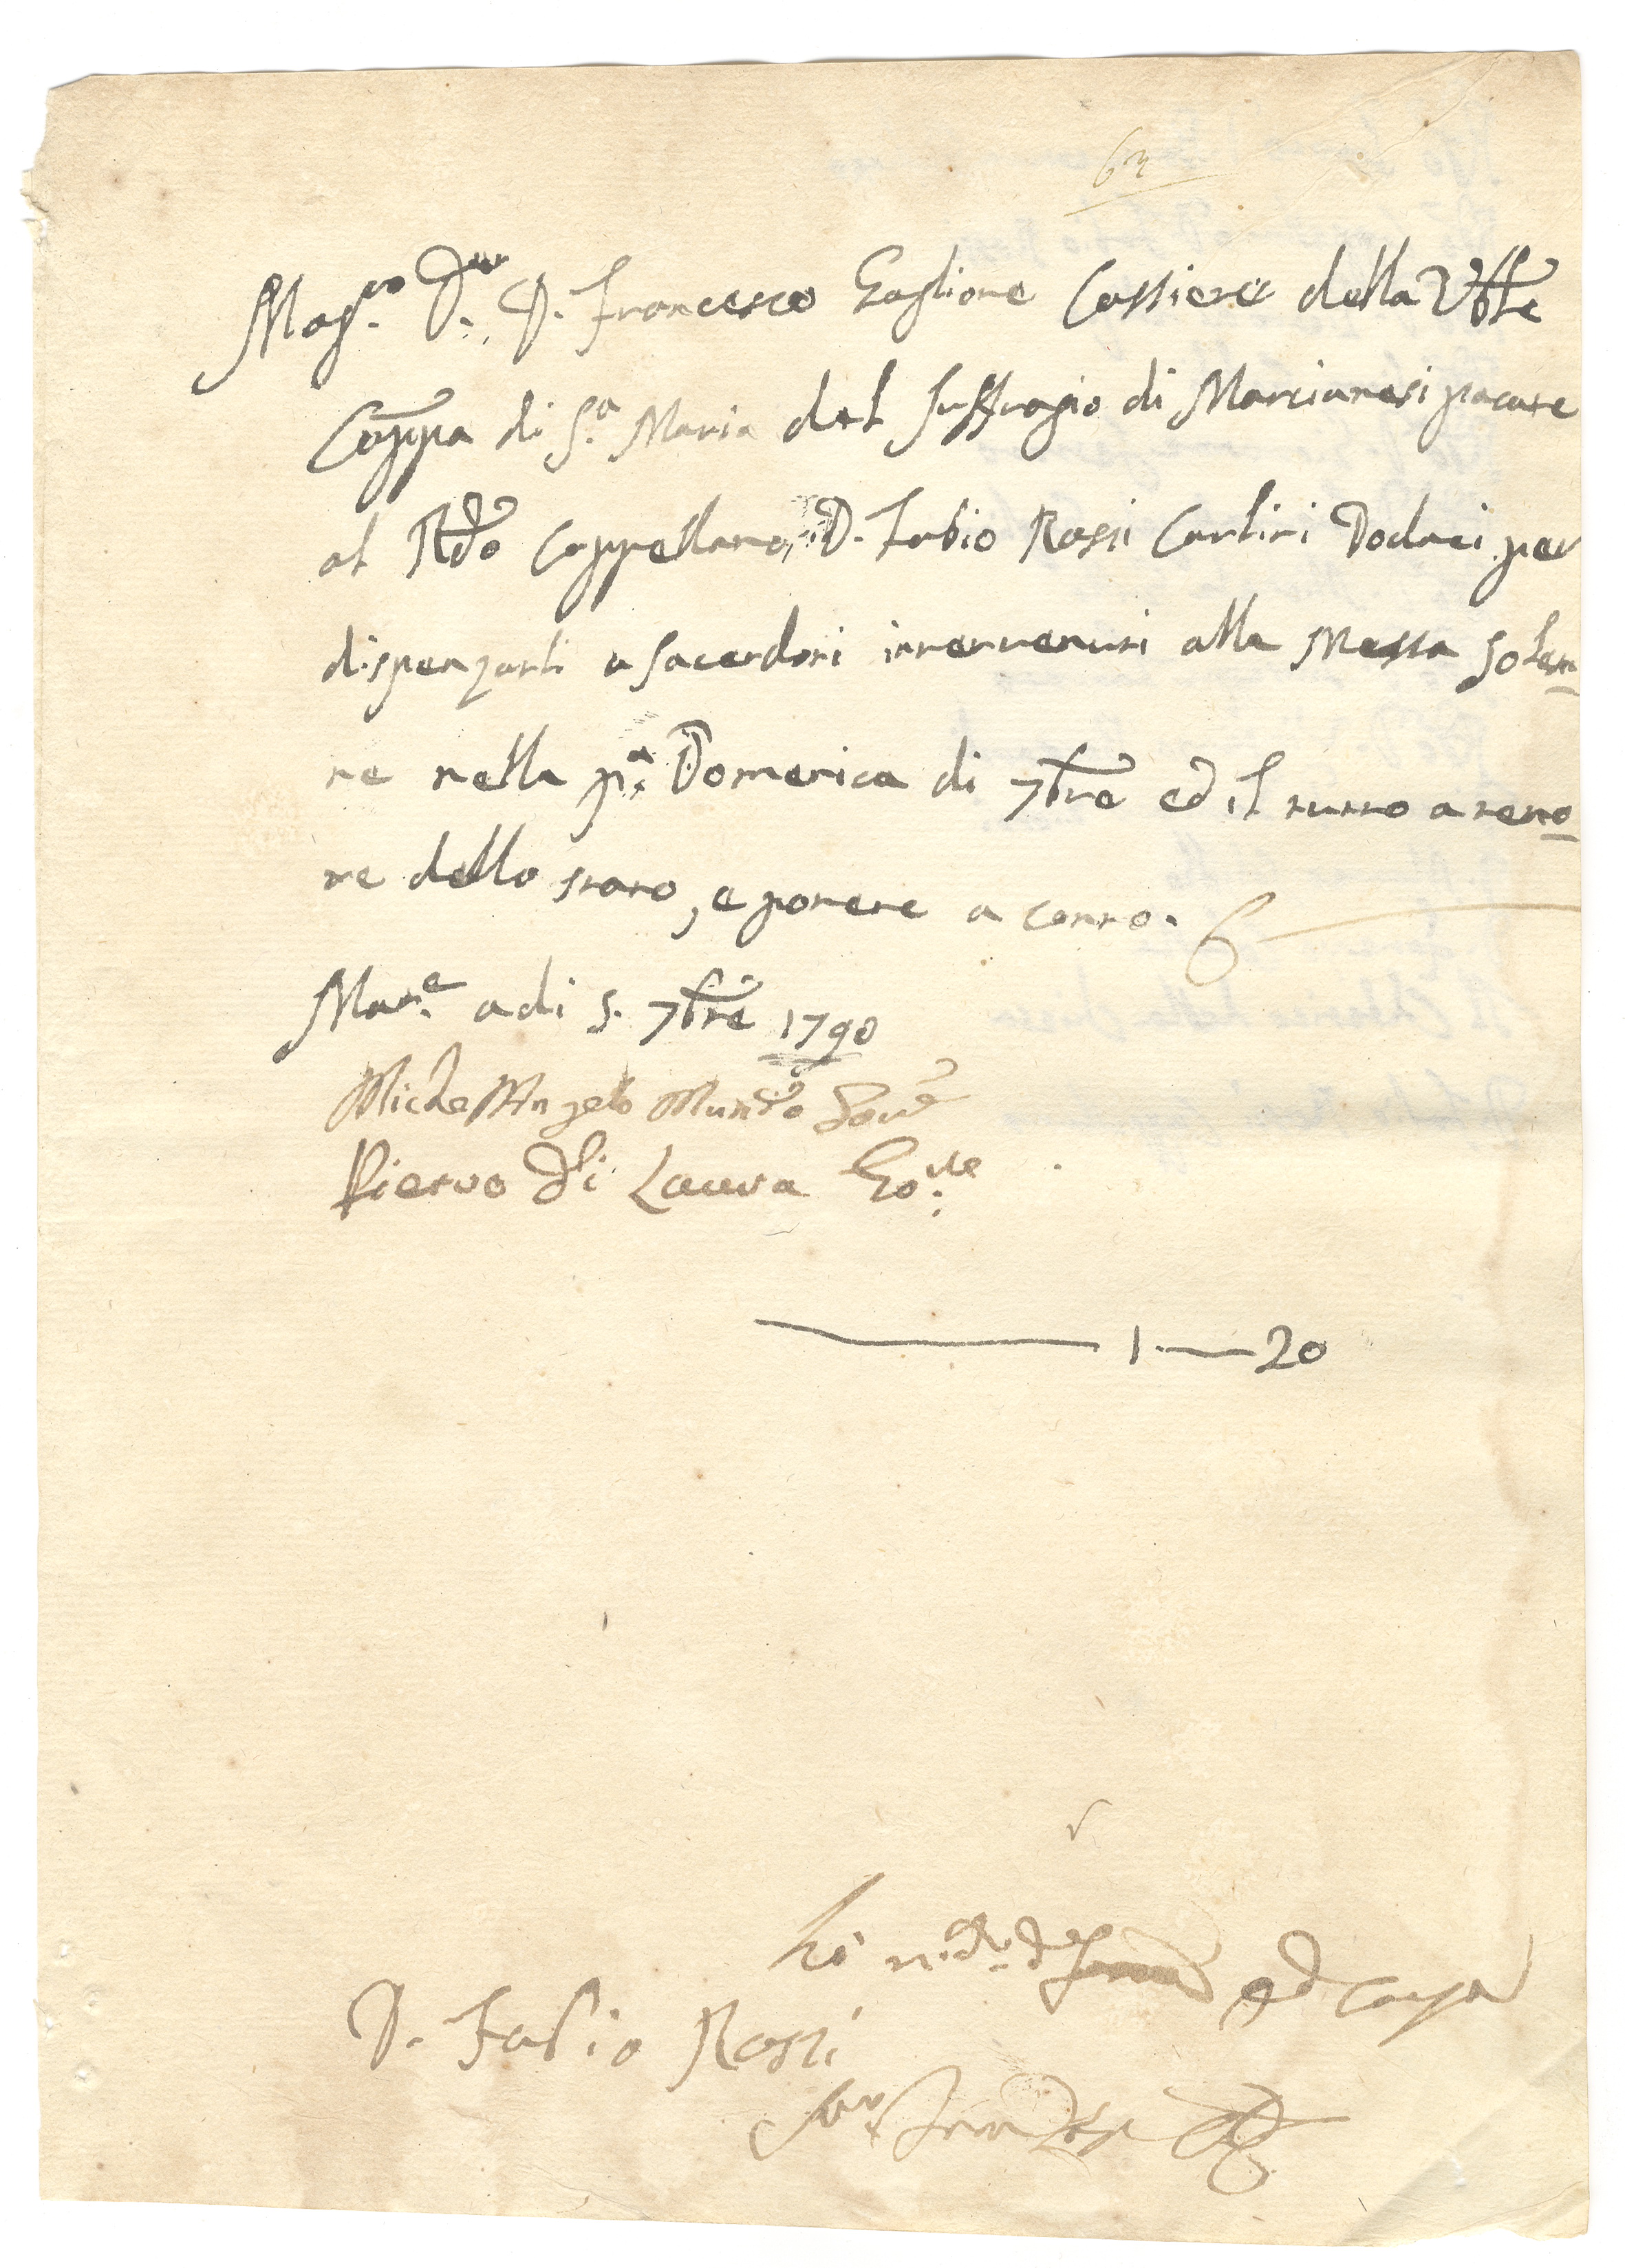 63
Mag.co D.r D. Francesco Gaglione Cassiere della Vble
Cappa di S.a Maria del Suffragio di Marcianesi pacare
al Rdo Cappellano, D. Fabio Rossi Carlini Dodeci per
dispenzarli a Sacerdoti intervenuti alla Messa Solen
ne nella p.a Domenica di 7bre ed il tutto a teno
re dello stato, e ponere a conto.
Mar.e a di 5. 7bre 1790
Michel'Angelo Mundo Gove
Pietro di Laura Go.re
1.—20
D. Fabio Rossi